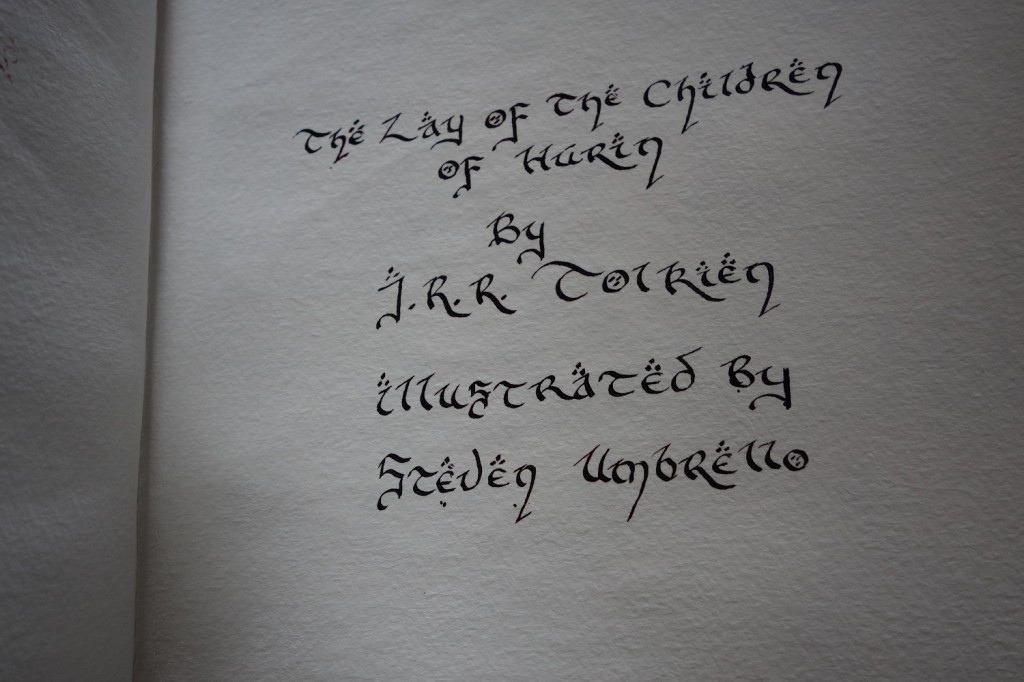 The Lay of The Children
of Húrin
By
J.R.R. Tolkien
illustrated By
Steven Umbrello